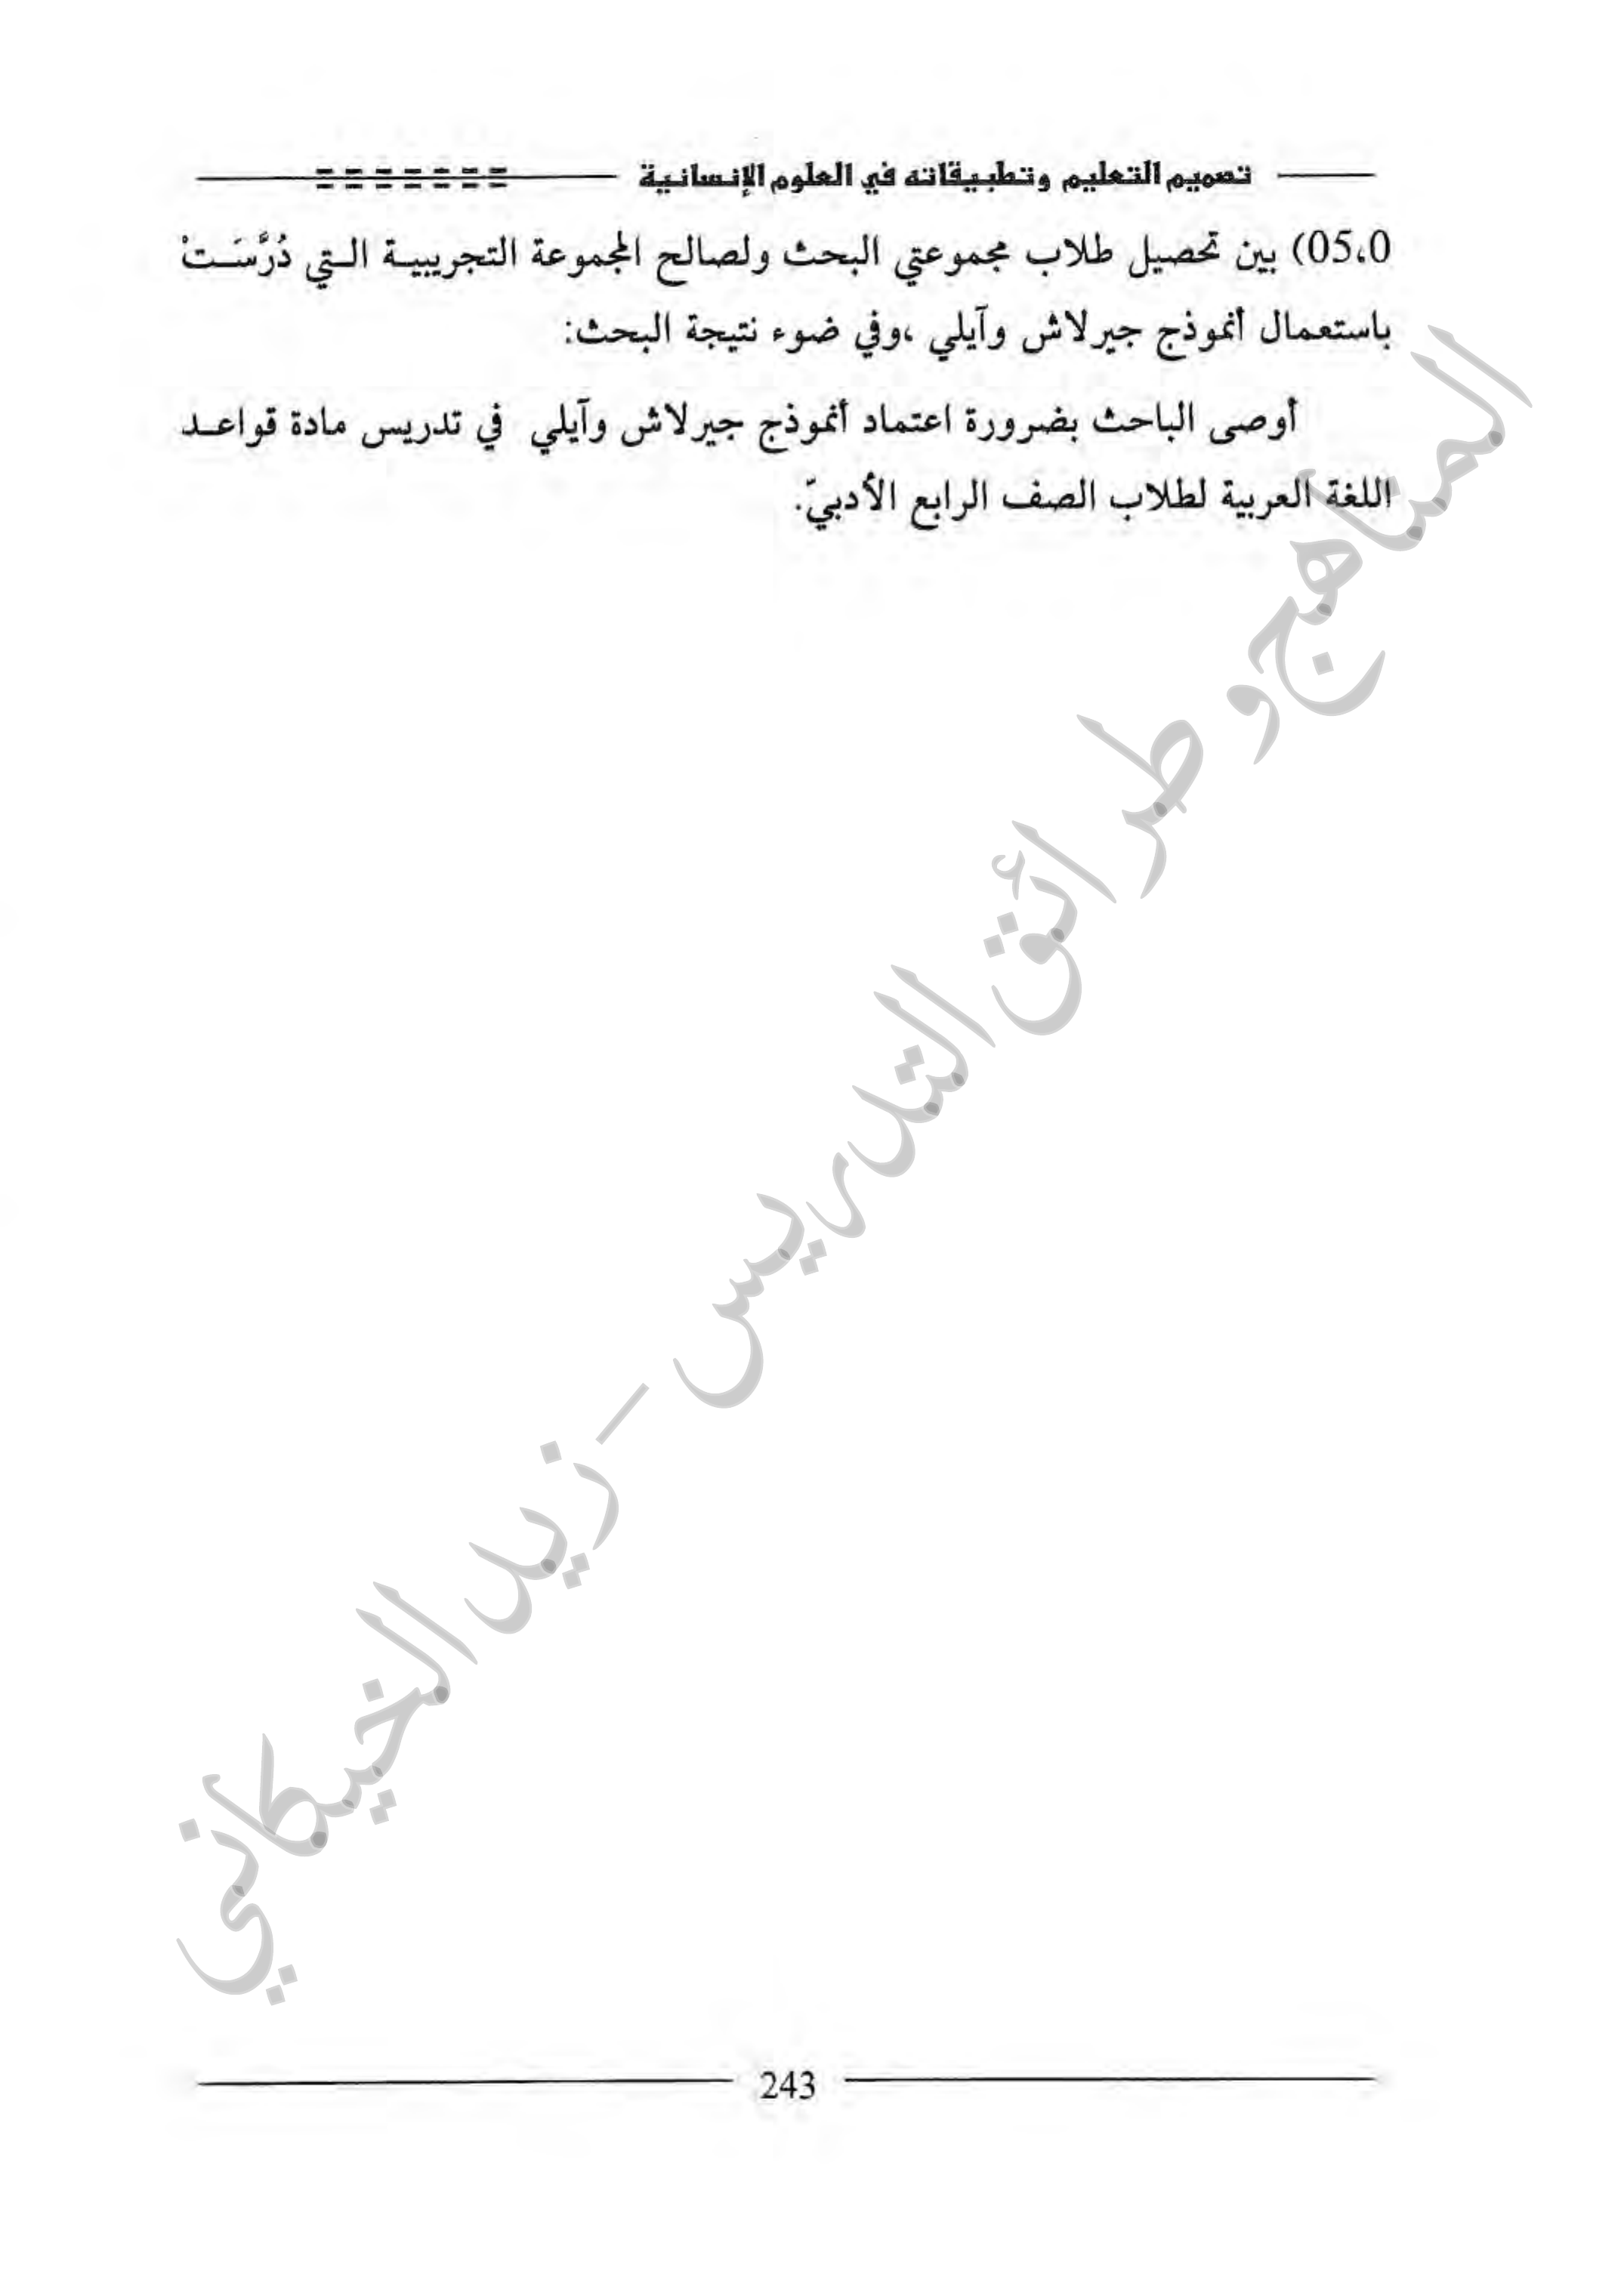 تصميم التعليم وتطبيقاته في العلوم الإنسانية
05،0) بين تحصيل طلاب مجموعتي البحث ولصالح المجموعة التجريبية التي دُرِّسَتْ
باستعمال أنموذج جيرلاش وآيلي ،وفي ضوء نتيجة البحث:
أوصى الباحث بضرورة اعتماد أنموذج جيرلاش وآيلي في تدريس مادة قواعد
اللغة العربية لطلاب الصف الرابع الأدبيّ.
المناهج و طرائق التدريس - زيد الخيكاني
243